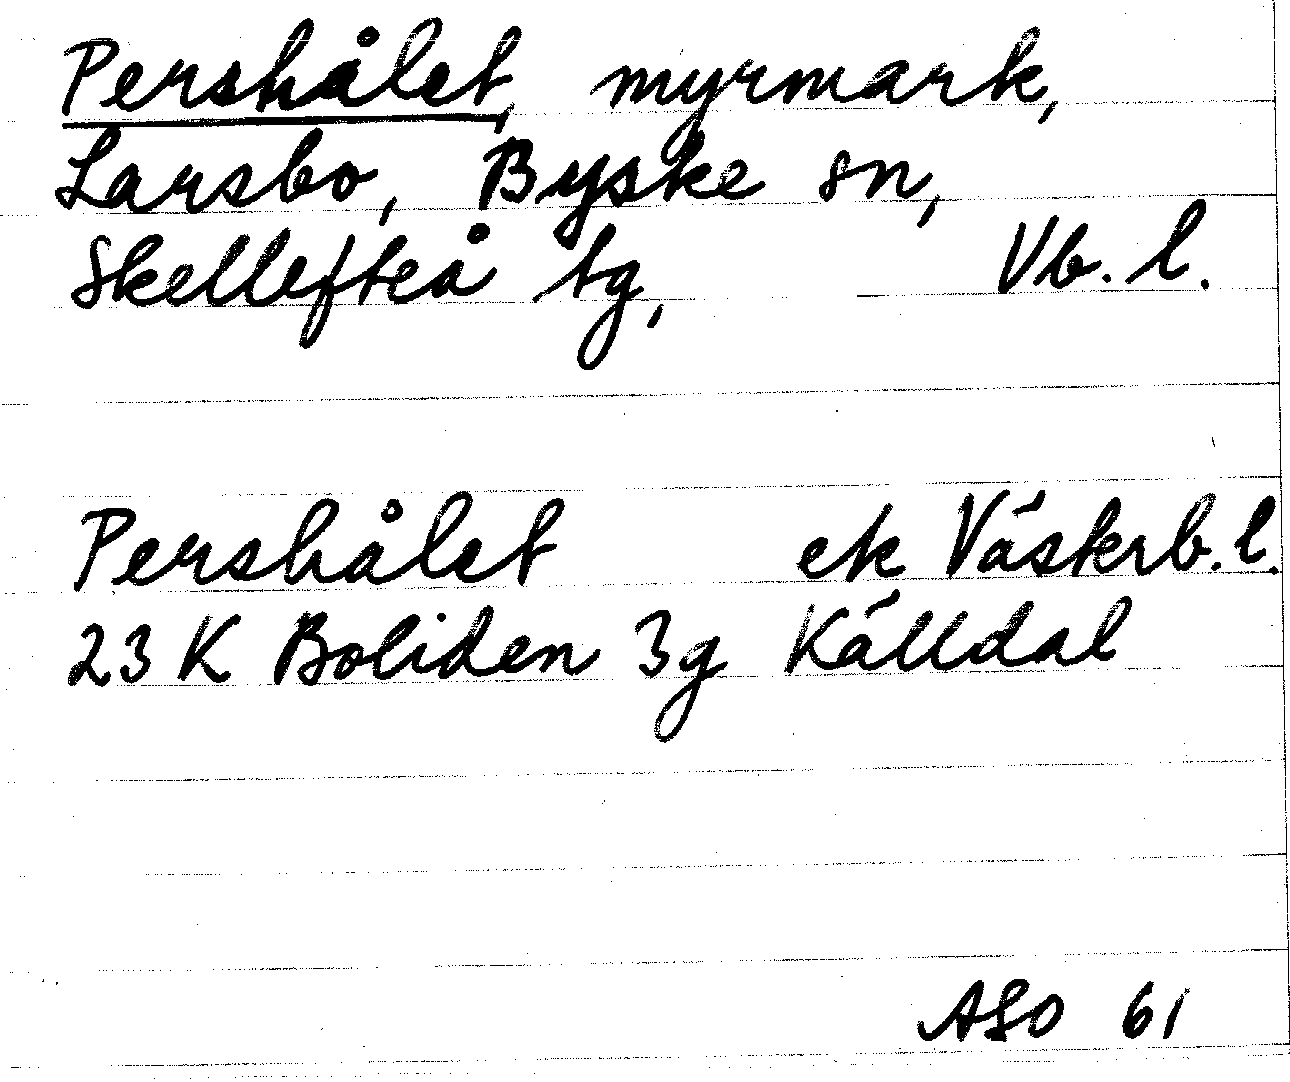 Pershålet, myrmark,
Larsbo, Byske sn,
Skellefteå tg, Vb. l.
Pershålet ek Västerb. l.
23 K Boliden 3g Källdal
ASO 61